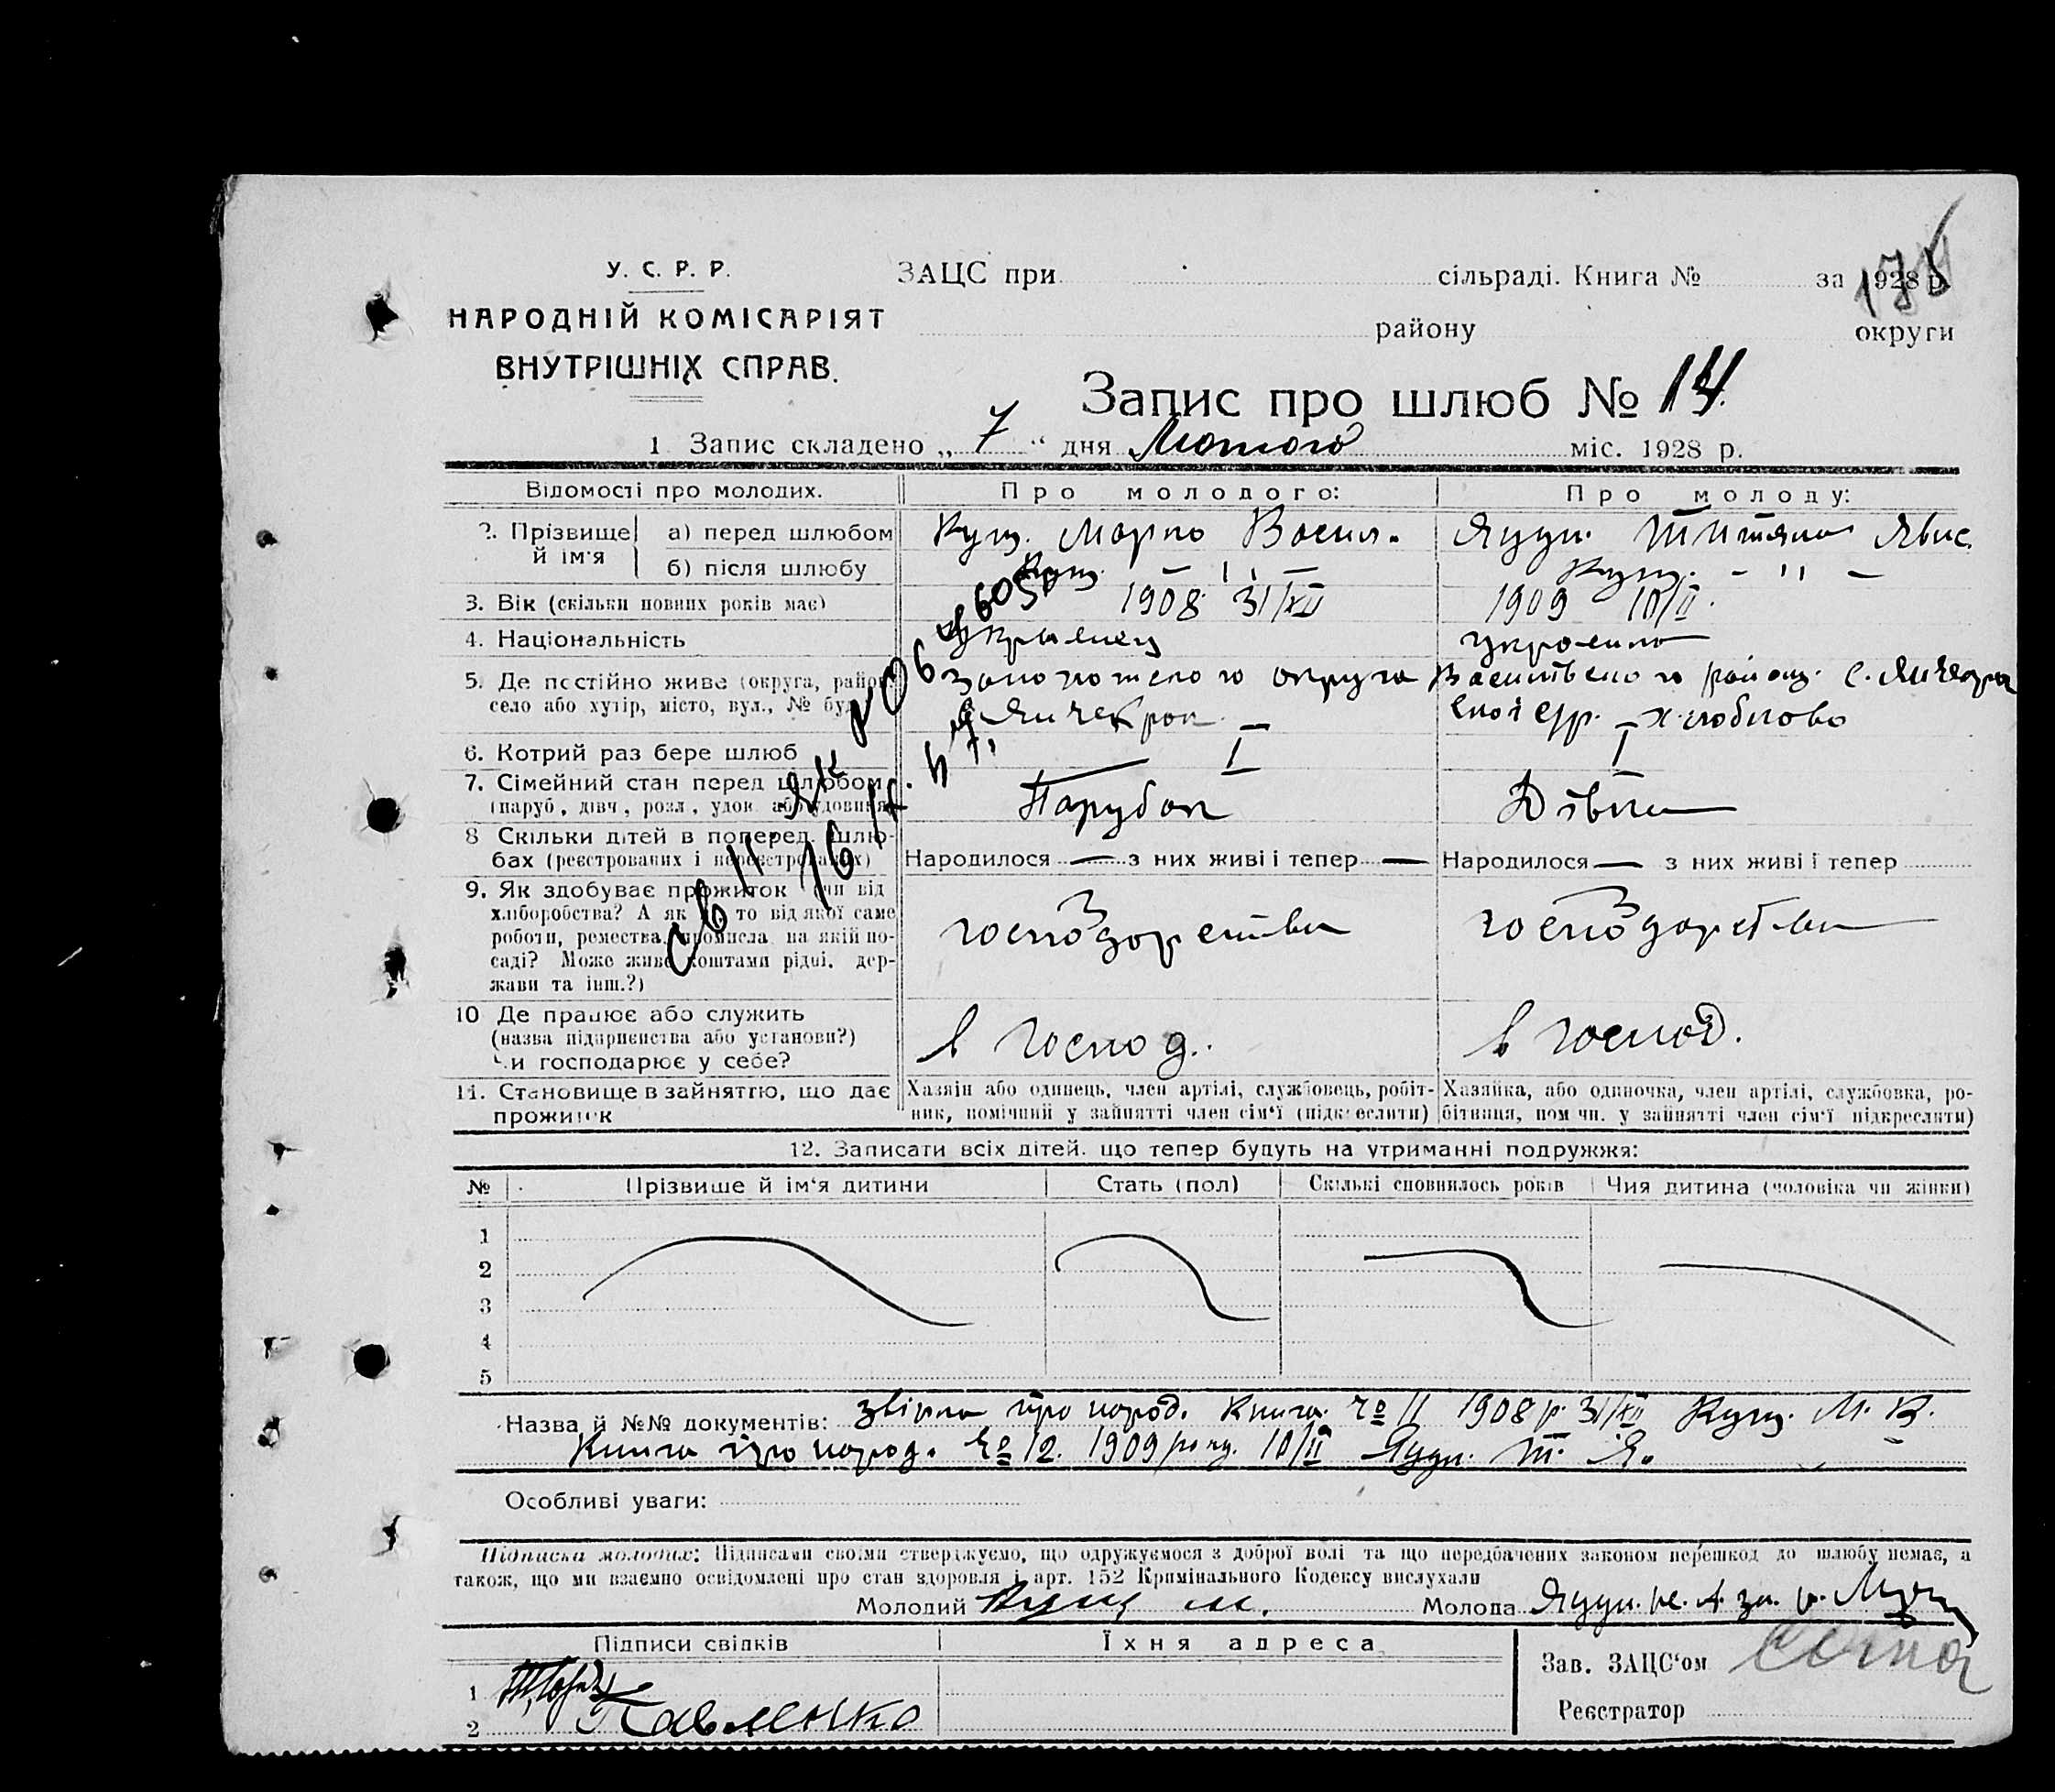 У. С. Р. Р.
НАРОДНІЙ КОМІСАРІЯТ
ВНУТРІШНІХ СПРАВ.
ЗАЦС при сільраді. Книга № за 1928 р.
району округи
Запис про шлюб № 14.
1 Запис складено „ 7 “ дня Лютого міс. 1928 р.
Відомості про молодих. Про молодого: Про молоду:
2. Прізвище й ім'я
а) перед шлюбом Кущ. Марко Васил. Яцун. Титяна
б) після шлюбу Кущ. — 〃 — Кущ. — 〃 —
3. Вік (скільки повних років має) 1908 31/XII 1909 10/II.
4. Національність Украінец украинка
5. Де постійно живе (округа, район
село або хутір, місто, вул., № буд
Запорожского округа Василівського району. с.
Янчекрак
6. Котрий раз бере шлюб I I
7. Сімейний стан перед шлюбом
(паруб., дівч., розл., удов. або удовиця
Парубок Дівка
8 Скільки дітей в поперед. шлю-
бах (реєстрованих і нереєстрованих)
Народилося — з них живі і тепер — Народилося — з них живі і тепер
9. Як здобуває прожиток (чи від
хліборобства? А як ні, то від якої саме
роботи, ремества, промисла на якій по-
саді? Може живе коштами рідні, дер-
жави та інш.?)
господорства господорства
10 Де працює або служить
(назва підприємства або установи?)
Чи господарює у себе?
в господ. в господ.
11. Становище в зайняттю, що дає
прожиток
Хазяїн або одинець, член артілі, службовець, робіт-
ник, помічний у зайнятті член сім'ї (підкреслити)
Хазяйка, або одиночка, член артілі, службовка, ро-
бітниця, пом чн. у зайнятті член сім'ї підкреслити)
12. Записати всіх дітей. що тепер будуть на утриманні подружжя:
№ Прізвише й ім'я дитини Стать (пол) Скількі сповнилось років Чия дитина (чоловіка чи жінки)
1
2
3
4
5
Назва й №№ документів: звірка про народ. Книга. 1908 р. 31/XII Кущ. М. В.
Книга про народ. 12. 1909 року. 10/II Яцун. Т. Я.
Особливі уваги:
Підписка молодих: Підписами своїми стверджуємо, що одружуємося з доброї волі та що передбачених законом перешкод до шлюбу немає, а
також, що ми взаємно освідомлені про стан здоровля і арт. 152 Кримінального Кодексу вислухали
Молодий Кущ М. Молода Яцун.
Підписи свідків Їхня адреса
Зав. ЗАЦС'ом
1
2 Павленко
Реєстратор